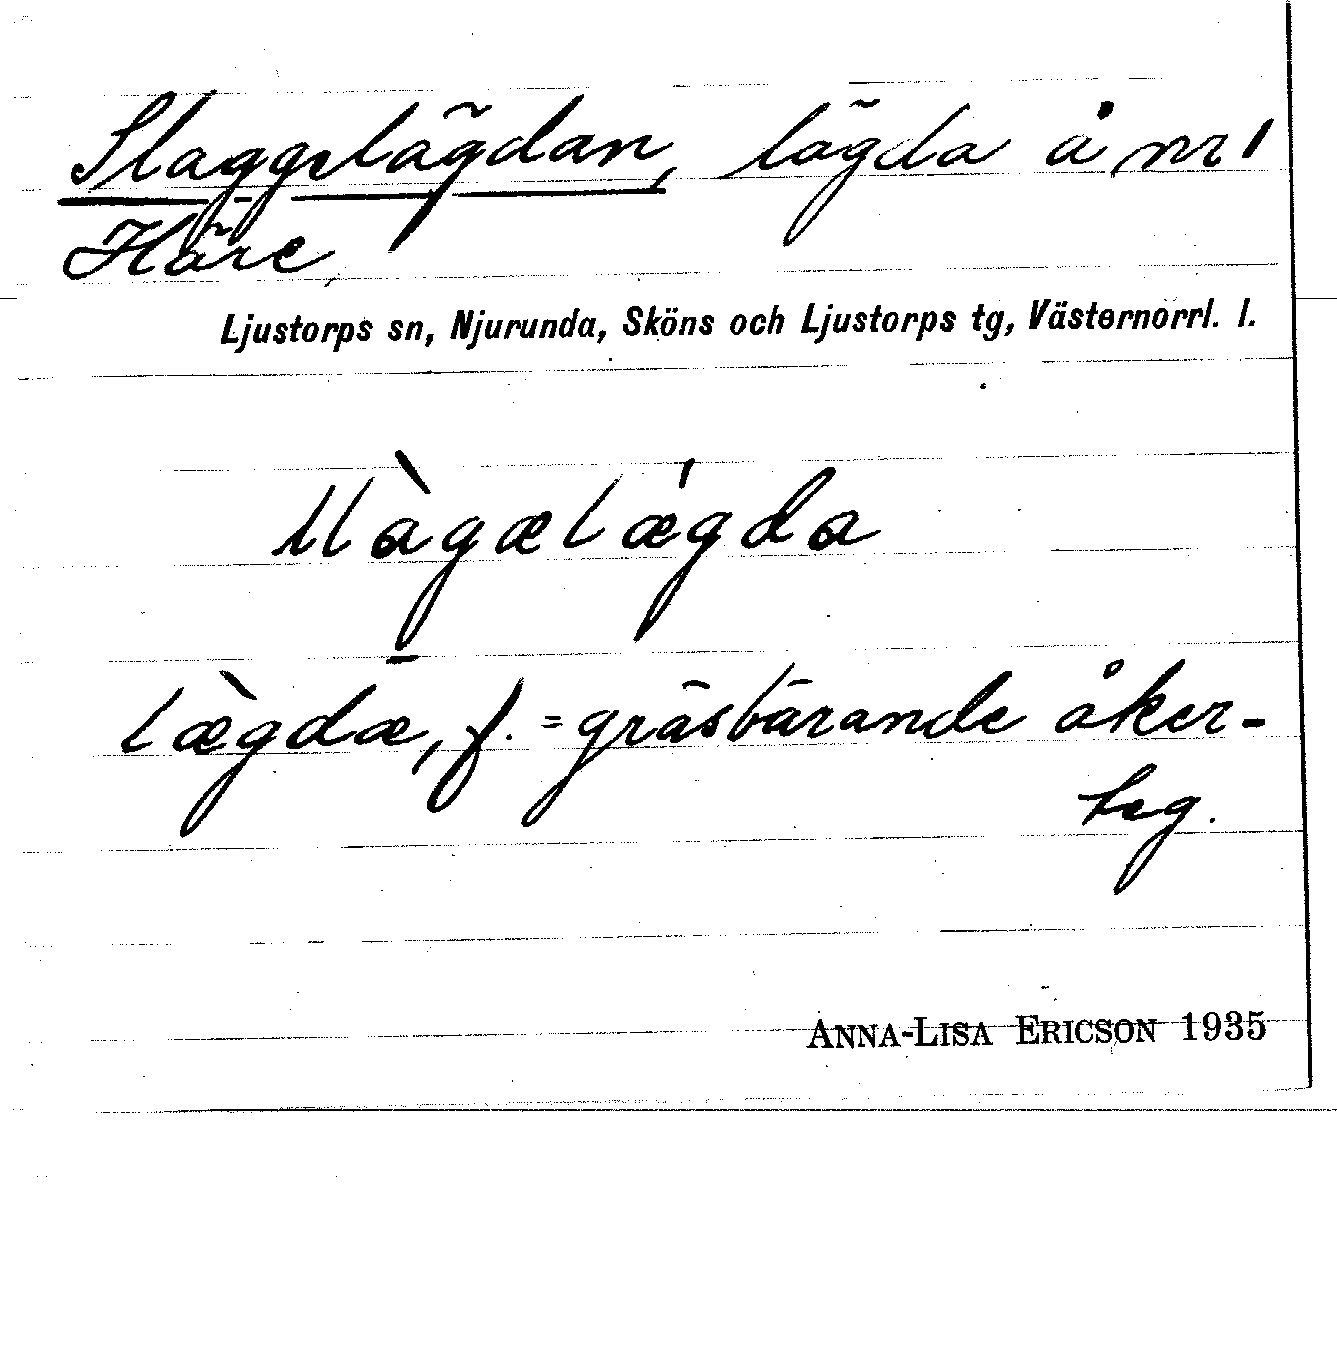 Slaggelägdan, lägda å nr 1
Häre,
Ljustorps sn, Njurunda, Sköns och Ljustorps tg, Västernorrl. l.
slàgælǽgda
læ̀gdæ, f. = gräsbärande åker-
teg.
ANNA-LISA ERICSON 1935